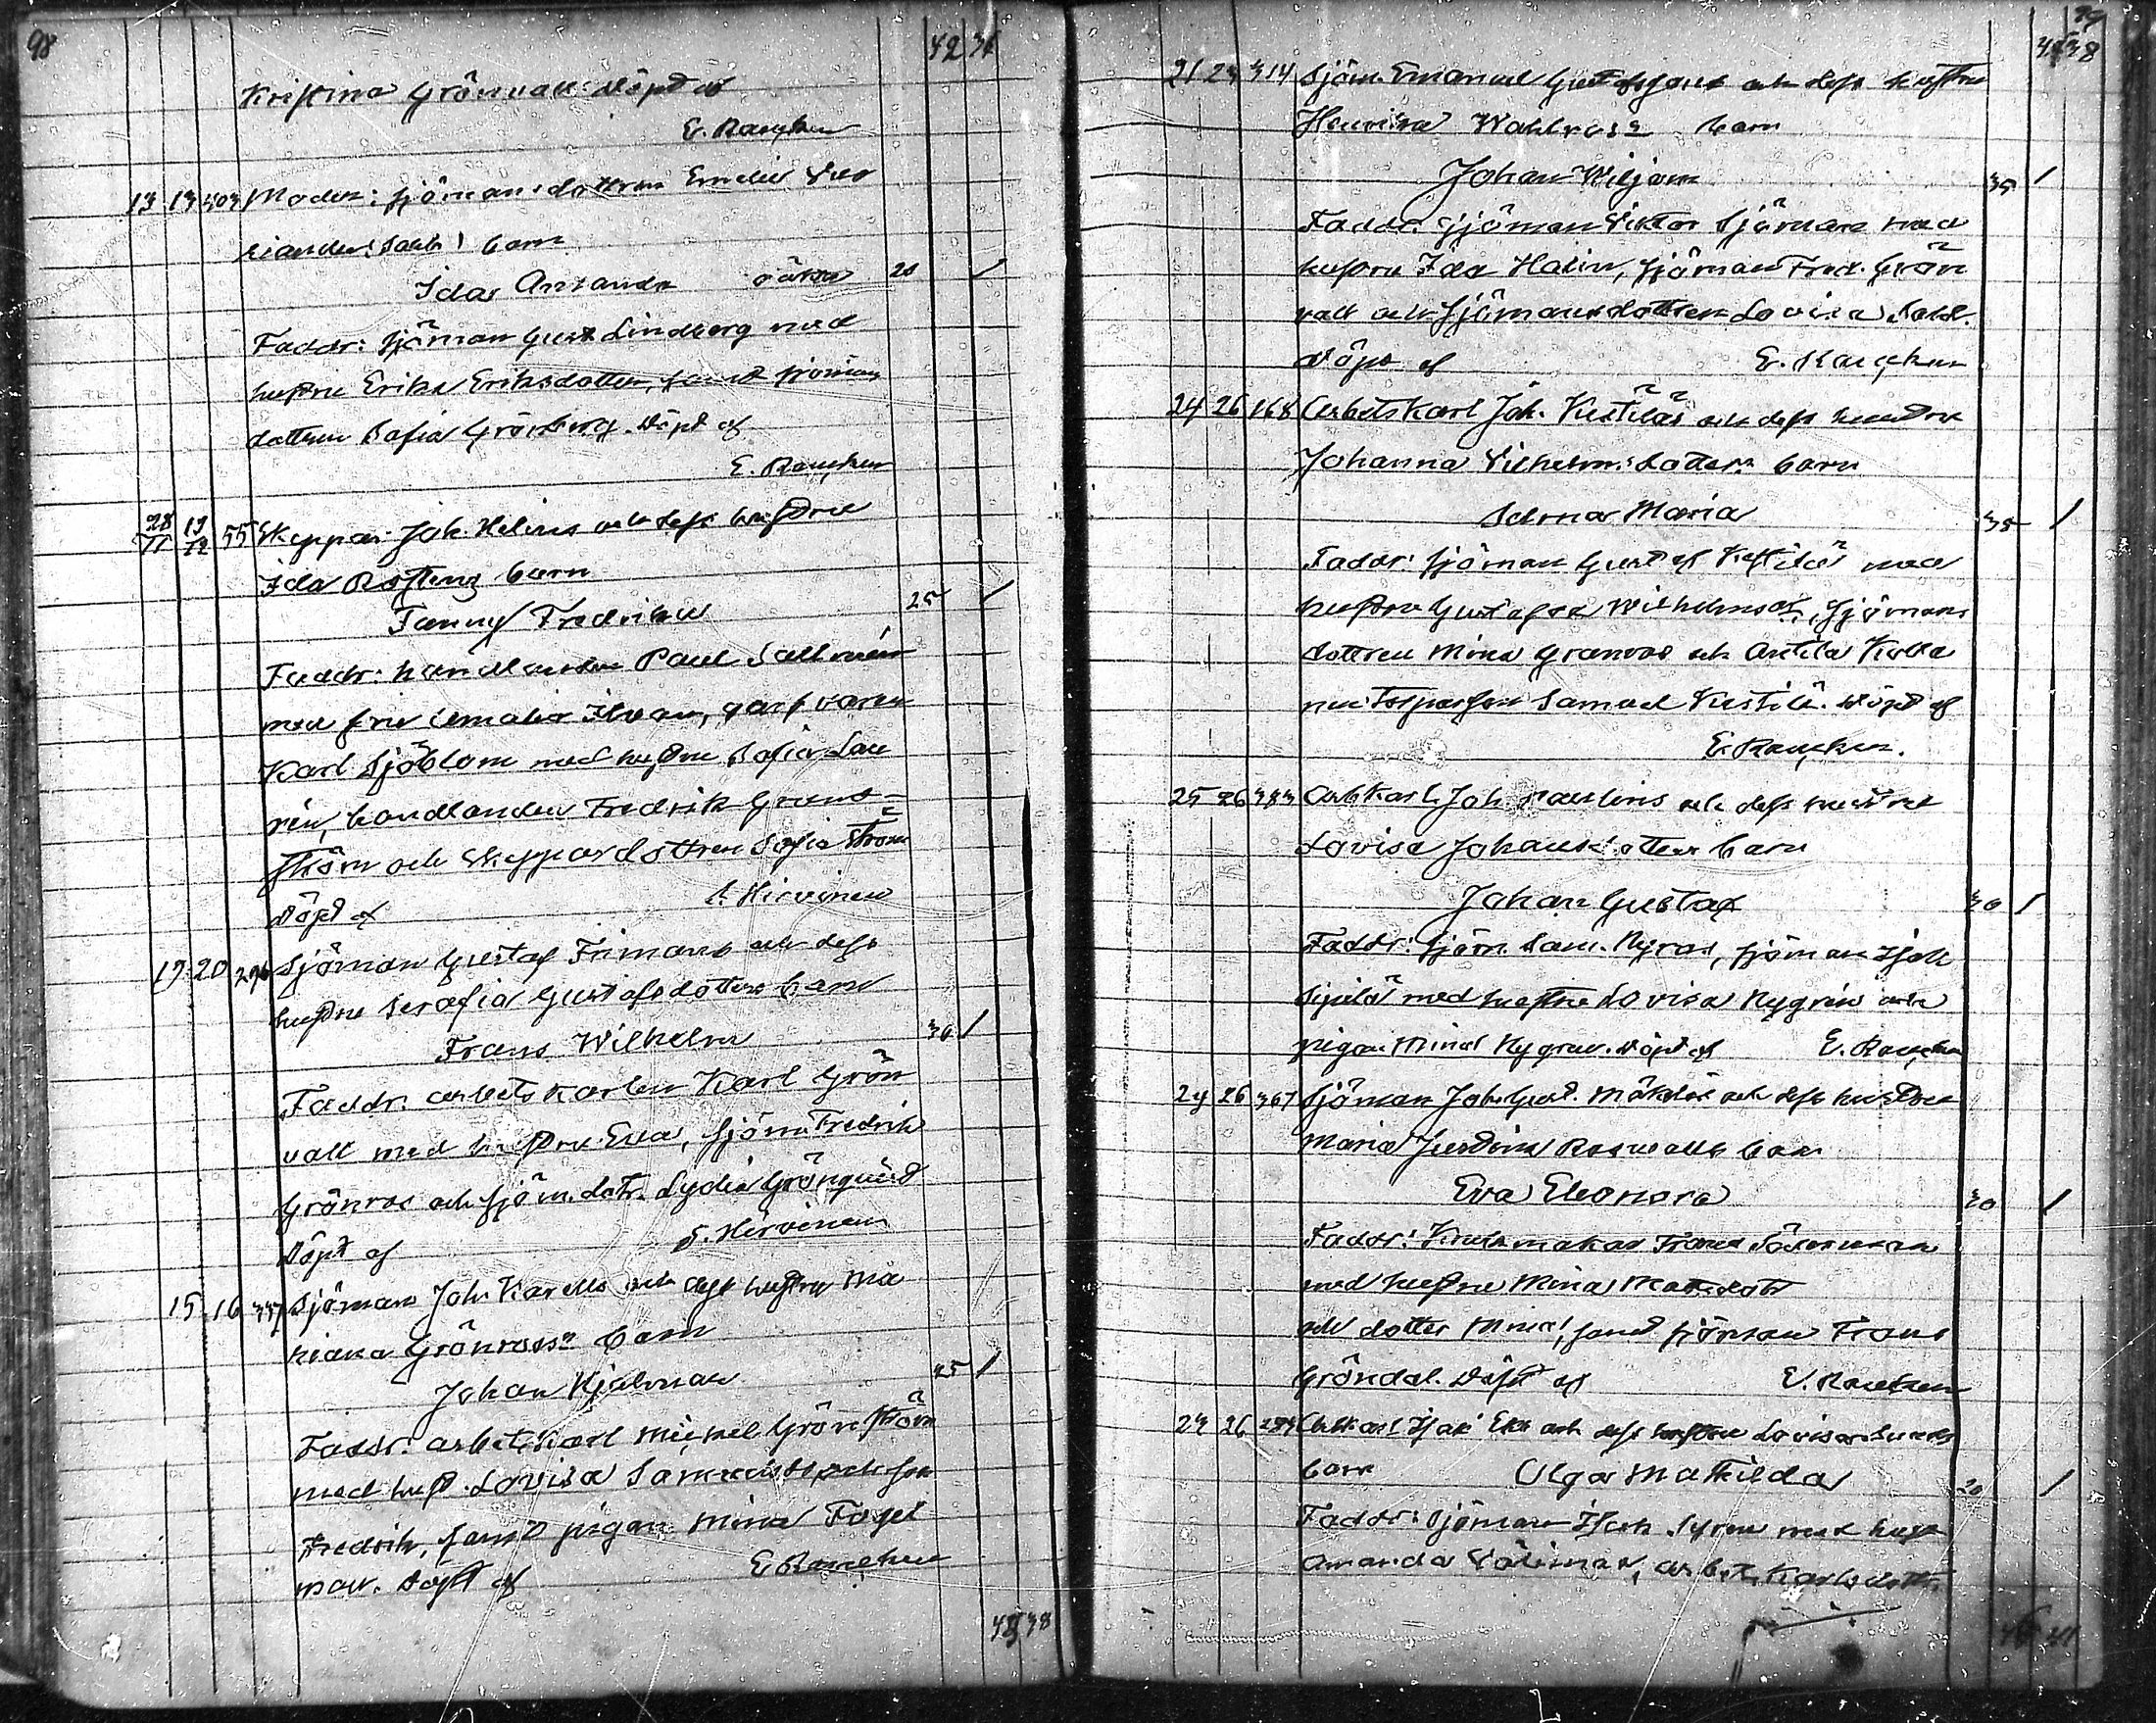 98 42 36
Kristina Grönvall. Döpt af
E. Rancken
13 13 403 Moder: sjömansdottren Emelie
barn
Ida Amanda oäkta 20 /
Faddr: sjöman Gust Lindberg med
hustru Erika Eriksdotter, samt sjömans
dottren Sofia Grönberg. Döpt af
E. Rancken
28/11 19/12 55 Skeppar Joh. Helins och dess hustru
Ida barn
Fanny Fredrika 25 /
Faddr: handlanden Paul Sallmén
med fru Amalia, garfvaren
Karl Sjöblom med hustru Sofia Lau
rén, handlanden Fredrik Grund-
ström och skeppardottren Sofia Ström
Döpt af Hirvinen
19 20 296 Sjöman Gustaf Frimans och dess
hustru Serafia Gustafsdotters barn
Frans Wilhelm 30 /
Faddr. arbetskarlen Karl Grön
vall med hustru Eva, sjöm. Fredrik
Grönroos och sjöm.dotr. Lydia Grönqvist
Döpt af S. Hirvinen
15 16 337 Sjöman Joh. Karells och dess hustru Ma
riana Grönroos's barn
Johan Hjalmar 25 /
Faddr: arbetskarl Michel Grönström
med hust. Lovisa Samuelsdr, och son
Fredrik, samt pigan Mina Fagel
man. Döpt af E Rancken
48 38
99
48 38
21 23 314 Sjöm. Emanuel Gustafssons och dess hustru
Henrika Wahlroos's barn
Johan Wiljam 35 /
Faddr: Sjöman Viktor Sjöman med
hustru Ida Halin, sjöman Fred. Grön
vall och sjömansdottren Lovisa Dahl.
Döpt af E. Rancken
24 26 168 Arbetskarl Joh. Kestiläs och dess hustru
Johanna Vilhelmsdotters barn
Selma Maria 38 /
Faddr: sjöman Gustaf Kestilä med
hustru Gustafva Wilhelmsdr, sjömans
dottren Mina Granroos och Antila
Torparson Samuel Kestilä. Döpt af
E. Rancken.
25 26 383 Arbkarl Joh Paulins och dess hustru
Lovisa Johansdotters barn
Johan Gustaf 30 /
Faddr: sjöm. Sam. Nyroos, sjöman Isak
Sipilä med hustru Lovisa Nygrén och
pigan Mina Nygren. Döpt af E. Rancken
24 26 367 Sjöman Joh. Gust. Mäkiläs och dess hustru
Maria Justina Roswalls barn
Eva Eleonora 20 /
Faddr: Krukmakar Frans Söderman
med hustru Mina Mattsdotr
och dotter Mina, samt sjöman Frans
Gröndal. Döpt af E. Rancken
23 26 284 Arbkarl Isak Eks och dess hustru Lovisa
barn Olga Mathilda 20 /
Faddr: Sjöman Isak Syren med hustr
Amanda, arbetskarlsdottr.